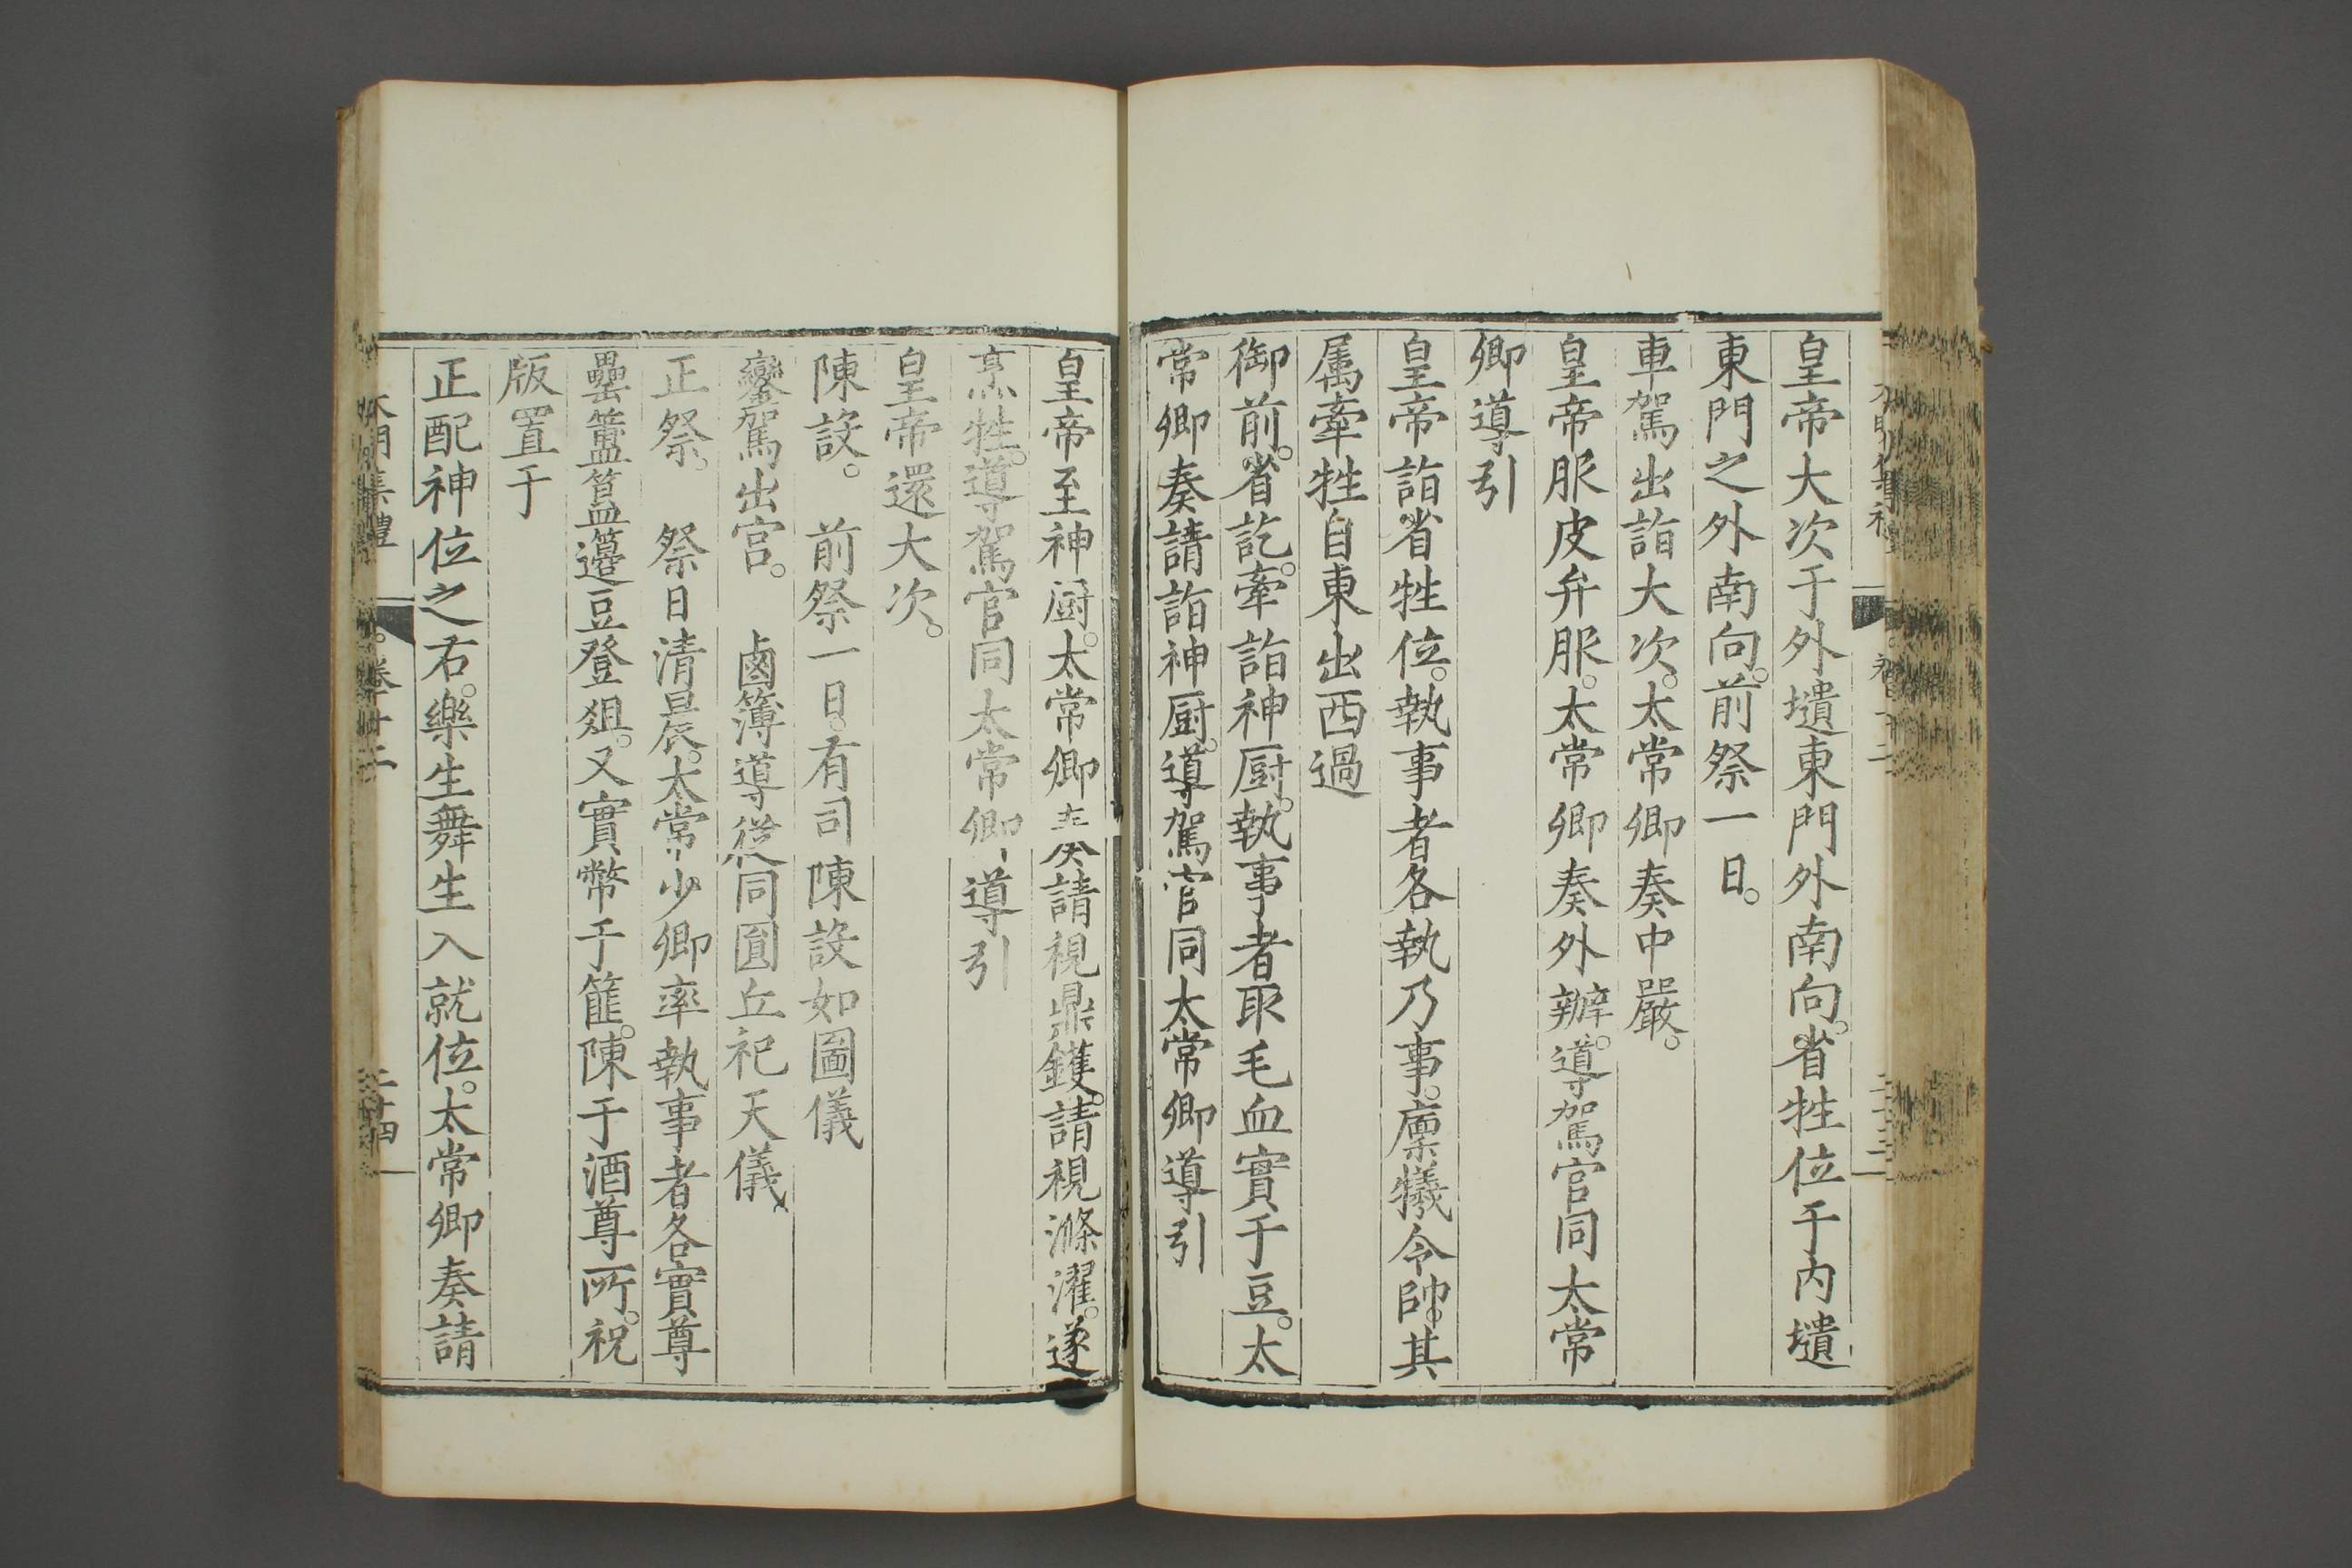 皇帝大次于外壝東門外南向。省牲位于内壝
東門之外南向。前祭一日。
車駕出詣大次。太常卿奏中嚴。
皇帝服皮弁服。太常卿奏外辦。導駕官同太常
卿導引
皇帝詣省牲位。執事者各執乃事。廩犧令帥。其
属牽牲自東出西過
御前。省訖。牽詣神厨。執事者取毛血實于豆。太
常卿奏請詣神厨。導駕官同太常卿導引
皇帝至神厨。太常卿奏請視鼎鑊。請視滌濯。遂
烹牲。導駕官同太常卿導引
皇帝還大次。
陳設。前祭一日。有司陳設如圖儀
鑾駕出宮。鹵簿導從同圓丘祀天儀
正祭。祭日清晨。太常少卿率執事者各實尊
罍簠簋籩豆登俎。又實幣于篚。陳于酒尊所。祝
版置于
正配神位之右。樂生舞生入就位。太常卿奏請
大明集禮 卷十二 二十四